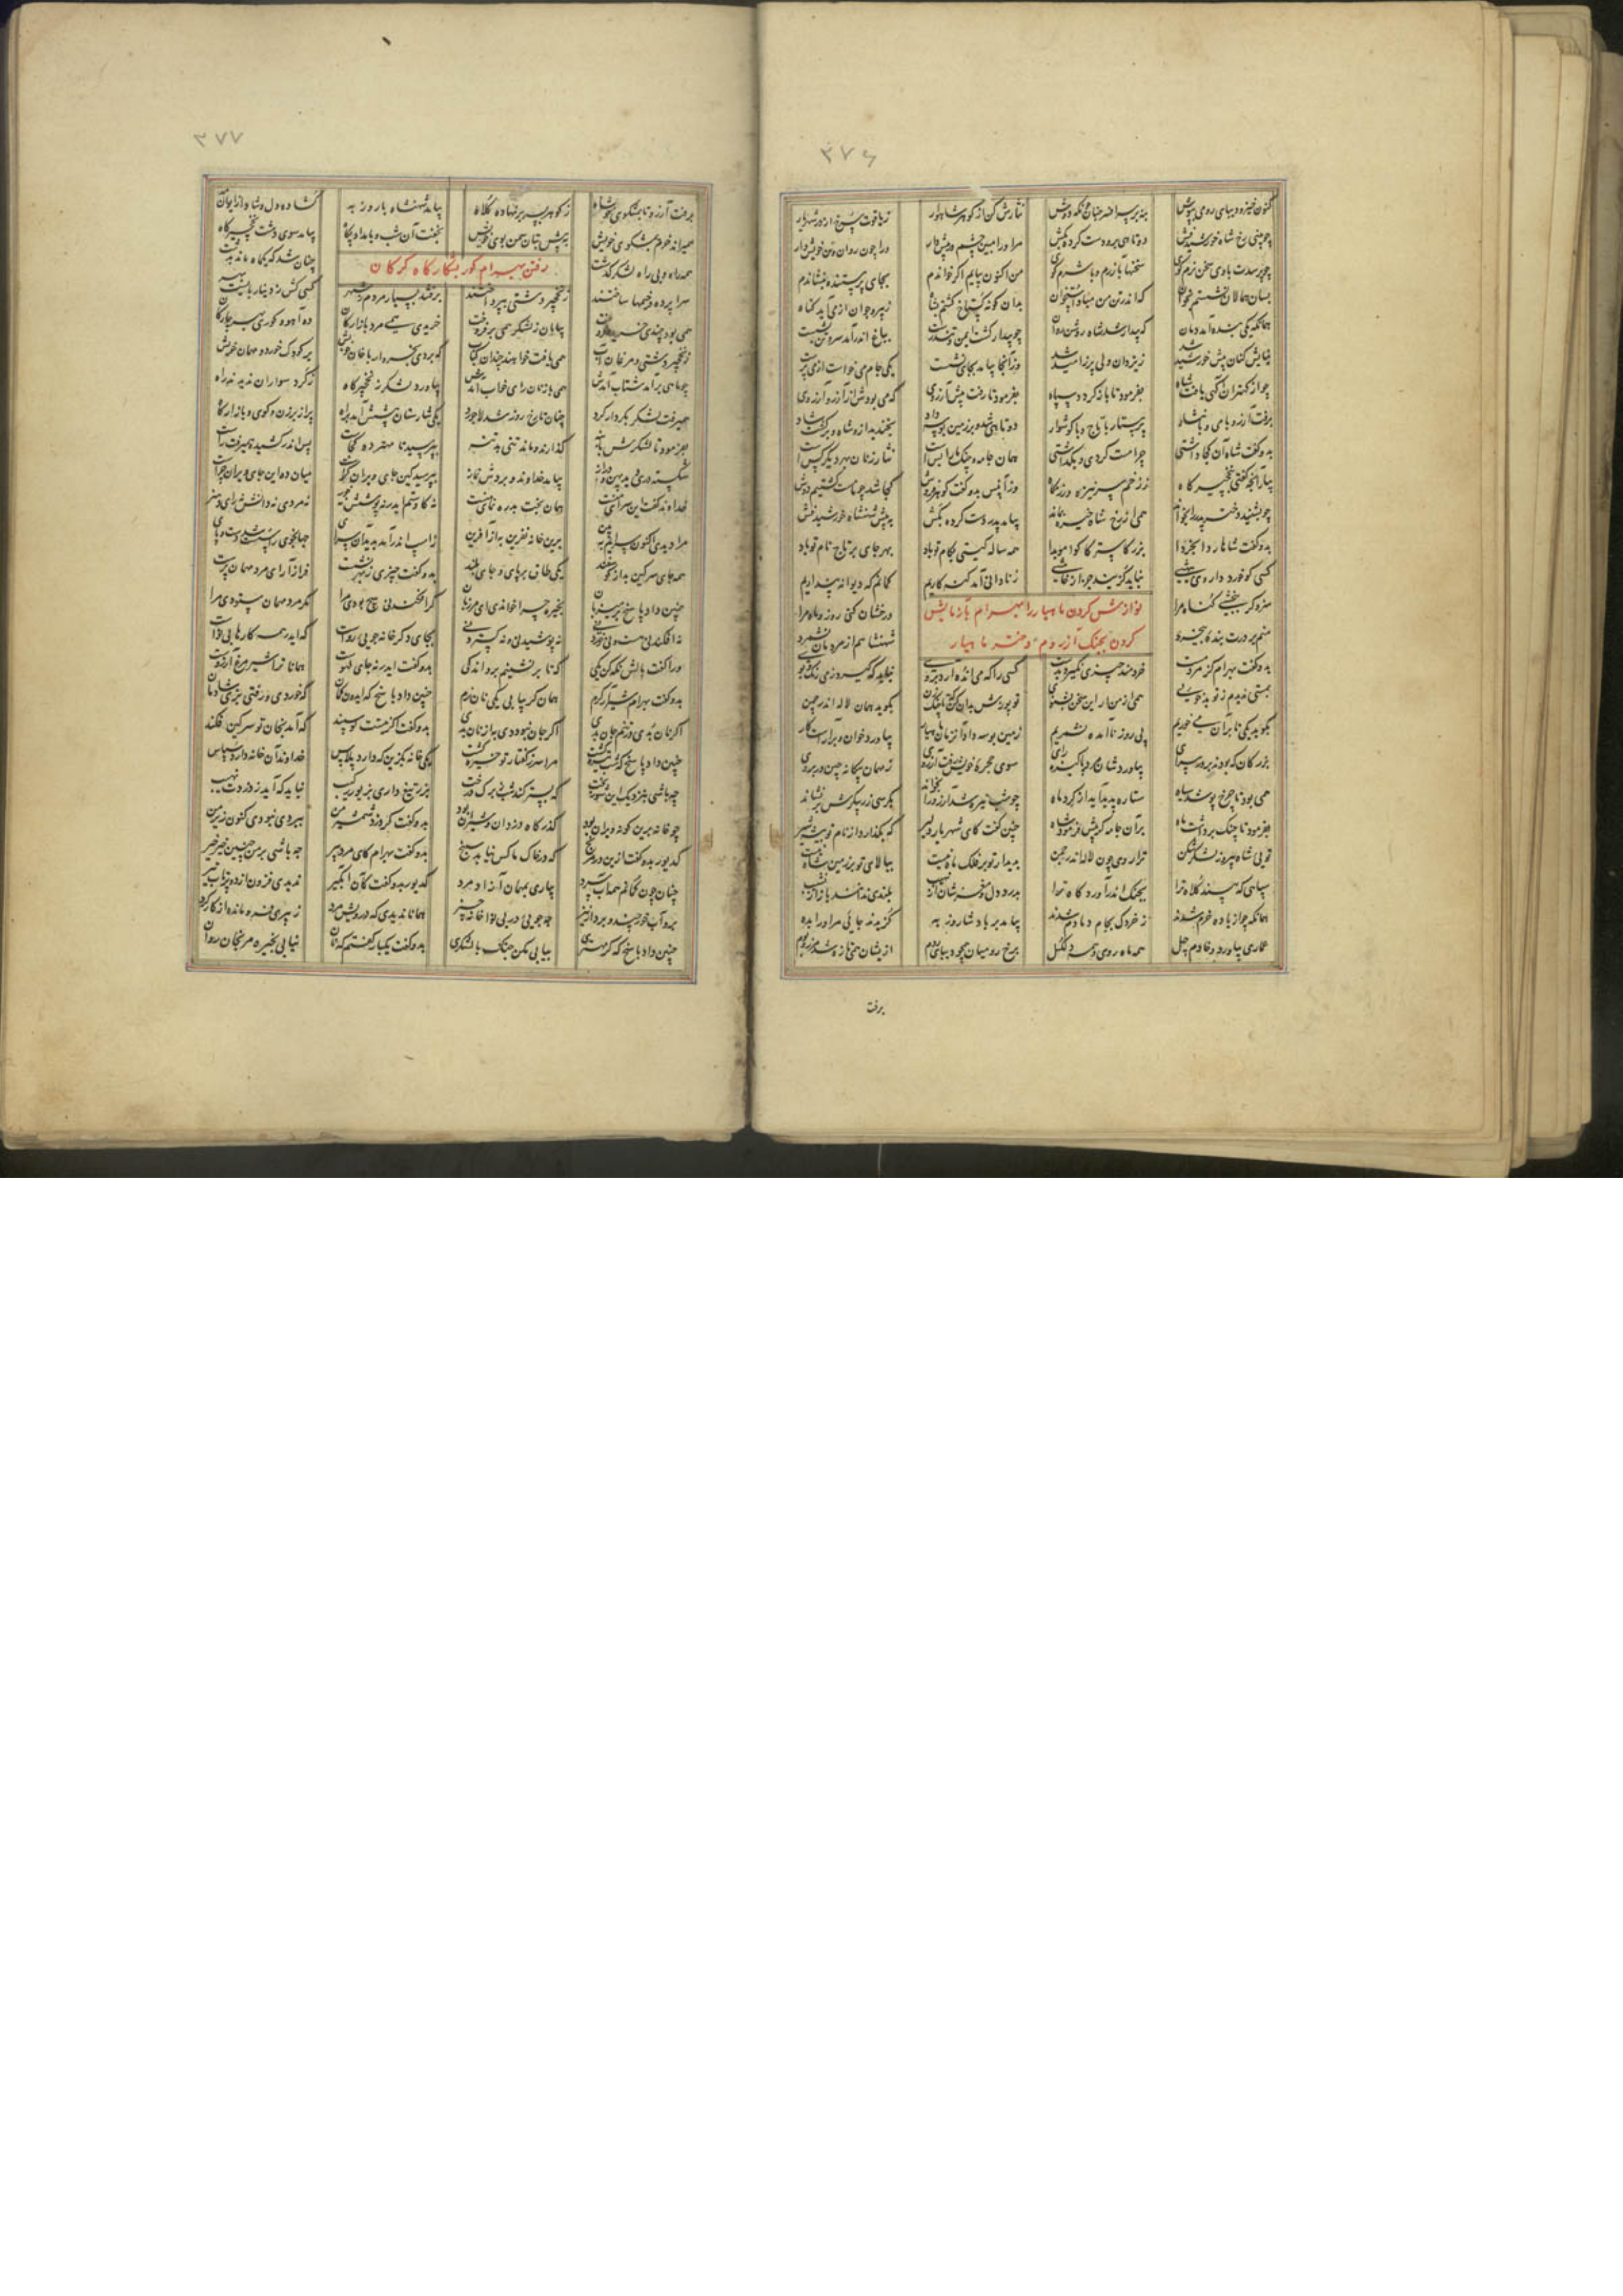 ۳۷۶
کنون خیز و دیبای رومی بپوش بنه بر سر افسر چنان هم که دوش نثارش کن از گوهر شاهوار ز یاقوت سرخ از در شهریار
چو بینی رخ شاه خورشید فش دو تا اندر آی و دست کرده بکش مرا و را مبین چشم در پیش دار ورا چون روان و تن خویش دار
چو پرسدت با وی سخن نرم گوی سخنها بآزرم و با شرم گوی من اکنون نیایم اگر خواندم بجای پرستنده بنشاندم
بسان همالان نشستم بخوان که اندر تن من مباد استخوان بدان گونه گستاخ گشتم بشاه ز پیر و جوان از می آید گناه
همانگه یکی بنده آمد دمان که بیدار شد شاه روشن روان چو بیدار گشت ایمن و تندرست بباغ اندر آمد سر و تن بشست
نیایش کنان پیش خورشید شد ز یزدان دلی پر ز امید شد وز آنجا بیامد بجای نشست یکی جام می خواست از می پرست
چو از کهتران آگهی یافت شاه بفرمود تا بازگردد سپاه بفرمود تا رفت پیش آرزوی که می بودش از آرزو آرزوی
برفت آرزو با می و با نثار پرستار با تاج و با گوشوار دو تا شده بر زمین بوسه داد بخندید ازو شاه و برگشت شاد
بدو گفت شاه آن کجا داشتی چرا مست کردی و بگذاشتی همان جامه و چنگ ما را بس است نثار زنان بهر دیگر کس است
بیار آنچه گفتی ز نخچیرگاه ز زخم سر نیزه و رزمگاه وز آن پس بدو گفت گوهر فروش کجا شد چو ما مست گشتیم دوش
چو بشنید دختر پدر را بخواند همی از رخ شاه خیره بماند بیامد پدر دست کرده بکش بپیش شهنشاه خورشید فش
بدو گفت شاها ردا بخردا بزرگا سترگا گوا موبدا همه ساله گیتی بکام تو باد بهر جای بر تاج نام تو باد
کسی کو خورد داروی بیهشی نباید گزیند جز از خامشی ز نادانی آمد گنه کاریم گمانم که دیوانه پنداریم
سزد گر ببخشی گناه مرا درخشان کنی روز و ماه مرا
نوازش کردن ماهیار را بهرام و آزمایش
کردن بچنگ آرزوم دختر ماهیار
منم بر درت بنده بی خرد شهنشاهم از مردمان نشمرد
بدو گفت بهرام کز مرد مست خردمند چیزی نگیرد بدست کسی را که می انده آرد بروی نباید که گیرد ز می رنگ و بوی
بمستی ندیدم ز تو بدخویی همی ز آرزو این سخن بشنوی تو پوزش بدان کن که تا چنگ زن بگوید همان لاله اندر چمن
بگوید یکی تا بر آن می خوریم پی روز ناآمده نشمریم زمین بوسه داد آن زمان ماهیار بیاورد خوان و برآراست کار
بزرگان که بودند بر در بپای بیاوردشان مرد پاکیزه رای سوی حجره خویش رفت آرزوی ز مهمان بیگانه چین در بروی
همی بود تا چرخ پوشد سیاه ستاره پدید آید از گرد ماه چو شب تیره شد آرزو را بخواند بکرسی زر پیکرش برنشاند
بفرمود تا چنگ برداشت ماه بر آن جامه کش فرمود شاه چنین گفت کای شهریار دلیر که بگذارد از نام تو بیشه شیر
تویی شاه پیروز لشکر شکن ترا روی چون لاله اندر چمن بدیدار تو بر فلک ماه نیست ببالای تو بر زمین شاه نیست
سپاهی که بیند کلاه ترا بجنگ اندر آوردگاه ترا بدرد دل و مغز شان از نهیب بلندی ندانند باز از نشیب
همانگه چو از باده خرم شدند ز خردک بجام دمادم شدند بیامد بر پادشا روزبه گزیدند جایی مر او را بده
عماری بیاورد و خادم چهل همه ماه روی و همه دل گسل برخ رومیان همچو دیبای روم از ایشان همی تازه شد مرز و بوم
برفت
۳۷۷
برفت آرزو تا بمشکوی شاه ز گوهر بسر بر نهاده کلاه بیامد شهنشاه با روزبه گشاده دل و شاد از ایوان مه
همیراند خرم بمشکوی خویش بپیش بتان سمن بوی خویش بخفت آن شب و بامداد پگاه بیامد سوی دشت نخچیرگاه
رفتن بهرام گور بشکارگاه گرگان
همه راه و بی راه لشکر گذشت چنان شد که یک ماه ماند بدشت
سراپرده و خیمها ساختند ز نخچیر دشتی بپرداختند برفتند بسیار مردم ز شهر کسی کش ز دینار بایست بهر
همی بود چندی خرید و فروخت بیابان ز لشکر همی برفروخت خریدی همی مرد بازارگان ده آهو و گوری بچارگان
ز نخچیر دشتی و مرغان آب همی یافت خواهنده چندان کباب که بردی بخروار با خان خویش بر کودک خورد و مهمان خویش
چو ماهی برآمد شتاب آمدش همی با زنان رای خواب آمدش بیاورد لشکر ز نخچیرگاه ز گرد سواران ندیدند راه
همیرفت لشکر بکردار گرد چنان تا رخ روز شد لاجورد یکی شارستان پیشش آمد براه پر از برزن و کوی و بازارگاه
بفرمود تا لشکرش با بنه گذارند و ماند تنی بد تنه بپرسید تا مهتر ده کجاست پس اندر کشید و همیرفت راست
شکسته دری دید پهن و دراز بیامد خداوند و بردش نماز بپرسید کین جای ویران کراست میان ده این جای ویران چراست
خداوند گفت این سرای منست همان بخت بد رهنمای منست نه گاو ستم ایدر نه پوشش نه خر نه مردی نه دانش نه رای و هنر
مرا دیدی اکنون سرایم ببین برین خانه نفرین به از آفرین ز اسپ اندر آمد بدید آن سرای جهانجوی را سست شد دست و پای
همه جای سرگین بد از گوسفند یکی طاق بر پای و جای بلند بدو گفت چیزی ز بهر نشست فراز آر ای مرد مهمان پرست
چنین داد پاسخ که میزبان بخیره چرا خواندی ای مرزبان گر افکندنی هیچ بودی مرا مگر مرد مهمان ستودی مرا
نه افکندنی هست و نی خوردنی نه پوشیدنی و نه گستردنی بجای دگر خانه جویی رواست که ایدر همه کارها بی نواست
ورا گفت بالش نگه کن یکی که تا برنشینم برو اندکی بدو گفت ایدر نه جای نکوست همانا ترا شیر مرغ آرزوست
بدو گفت بهرام شیر آر گرم همان گر بیابی یکی نان نرم چنین داد پاسخ که ایدون گمان که خوردی و رفتی بری شادمان
اگر نان بدی در تنم جان بدی اگر جان نبودی بیا نان بدی بدو گفت گر نیستت گوسپند که آمد بخان تو سرگین فکند
چنین داد پاسخ که شب تیره گشت مرا سر ز گفتار تو خیره گشت یکی خانه بگزین که دارد پلاس خداوند آن خانه دارد سپاس
چه باشی بنزدیک این شور بخت که بستر کند شب ز برگ درخت بزر تیغ داری بزر بر رکیب نباید که آید ز دزدت نهیب
چو خانه برین گونه ویران بود گذرگاه دزدان و شیران بود بدو گفت گر دزد شمشیر من ببردی نبودی کنون زیر من
کدیور بدو گفت ازین در مرنج که در خان ما کس نیابد سپنج بدو گفت بهرام کای مرد پیر چه باشی بر من چنین خیر خیر
چنان چون گمانم هم از آب سرد بیاری بمهمان آزاد مرد کدیور بدو گفت کان آبگیر ندیدی فزون از دو پرتاب تیر
برو آب خور چند و بردار نیز چه جویی درین بی نوا خانه چیز همانا ندیدی که درویش مرد ز پیری فرو مانده از کارکرد
چنین داد پاسخ که گر مهتری بیابی مکن جنگ با لشکری بدو گفت یکبار گفتم که نان نیابی بخیره مرنجان روان